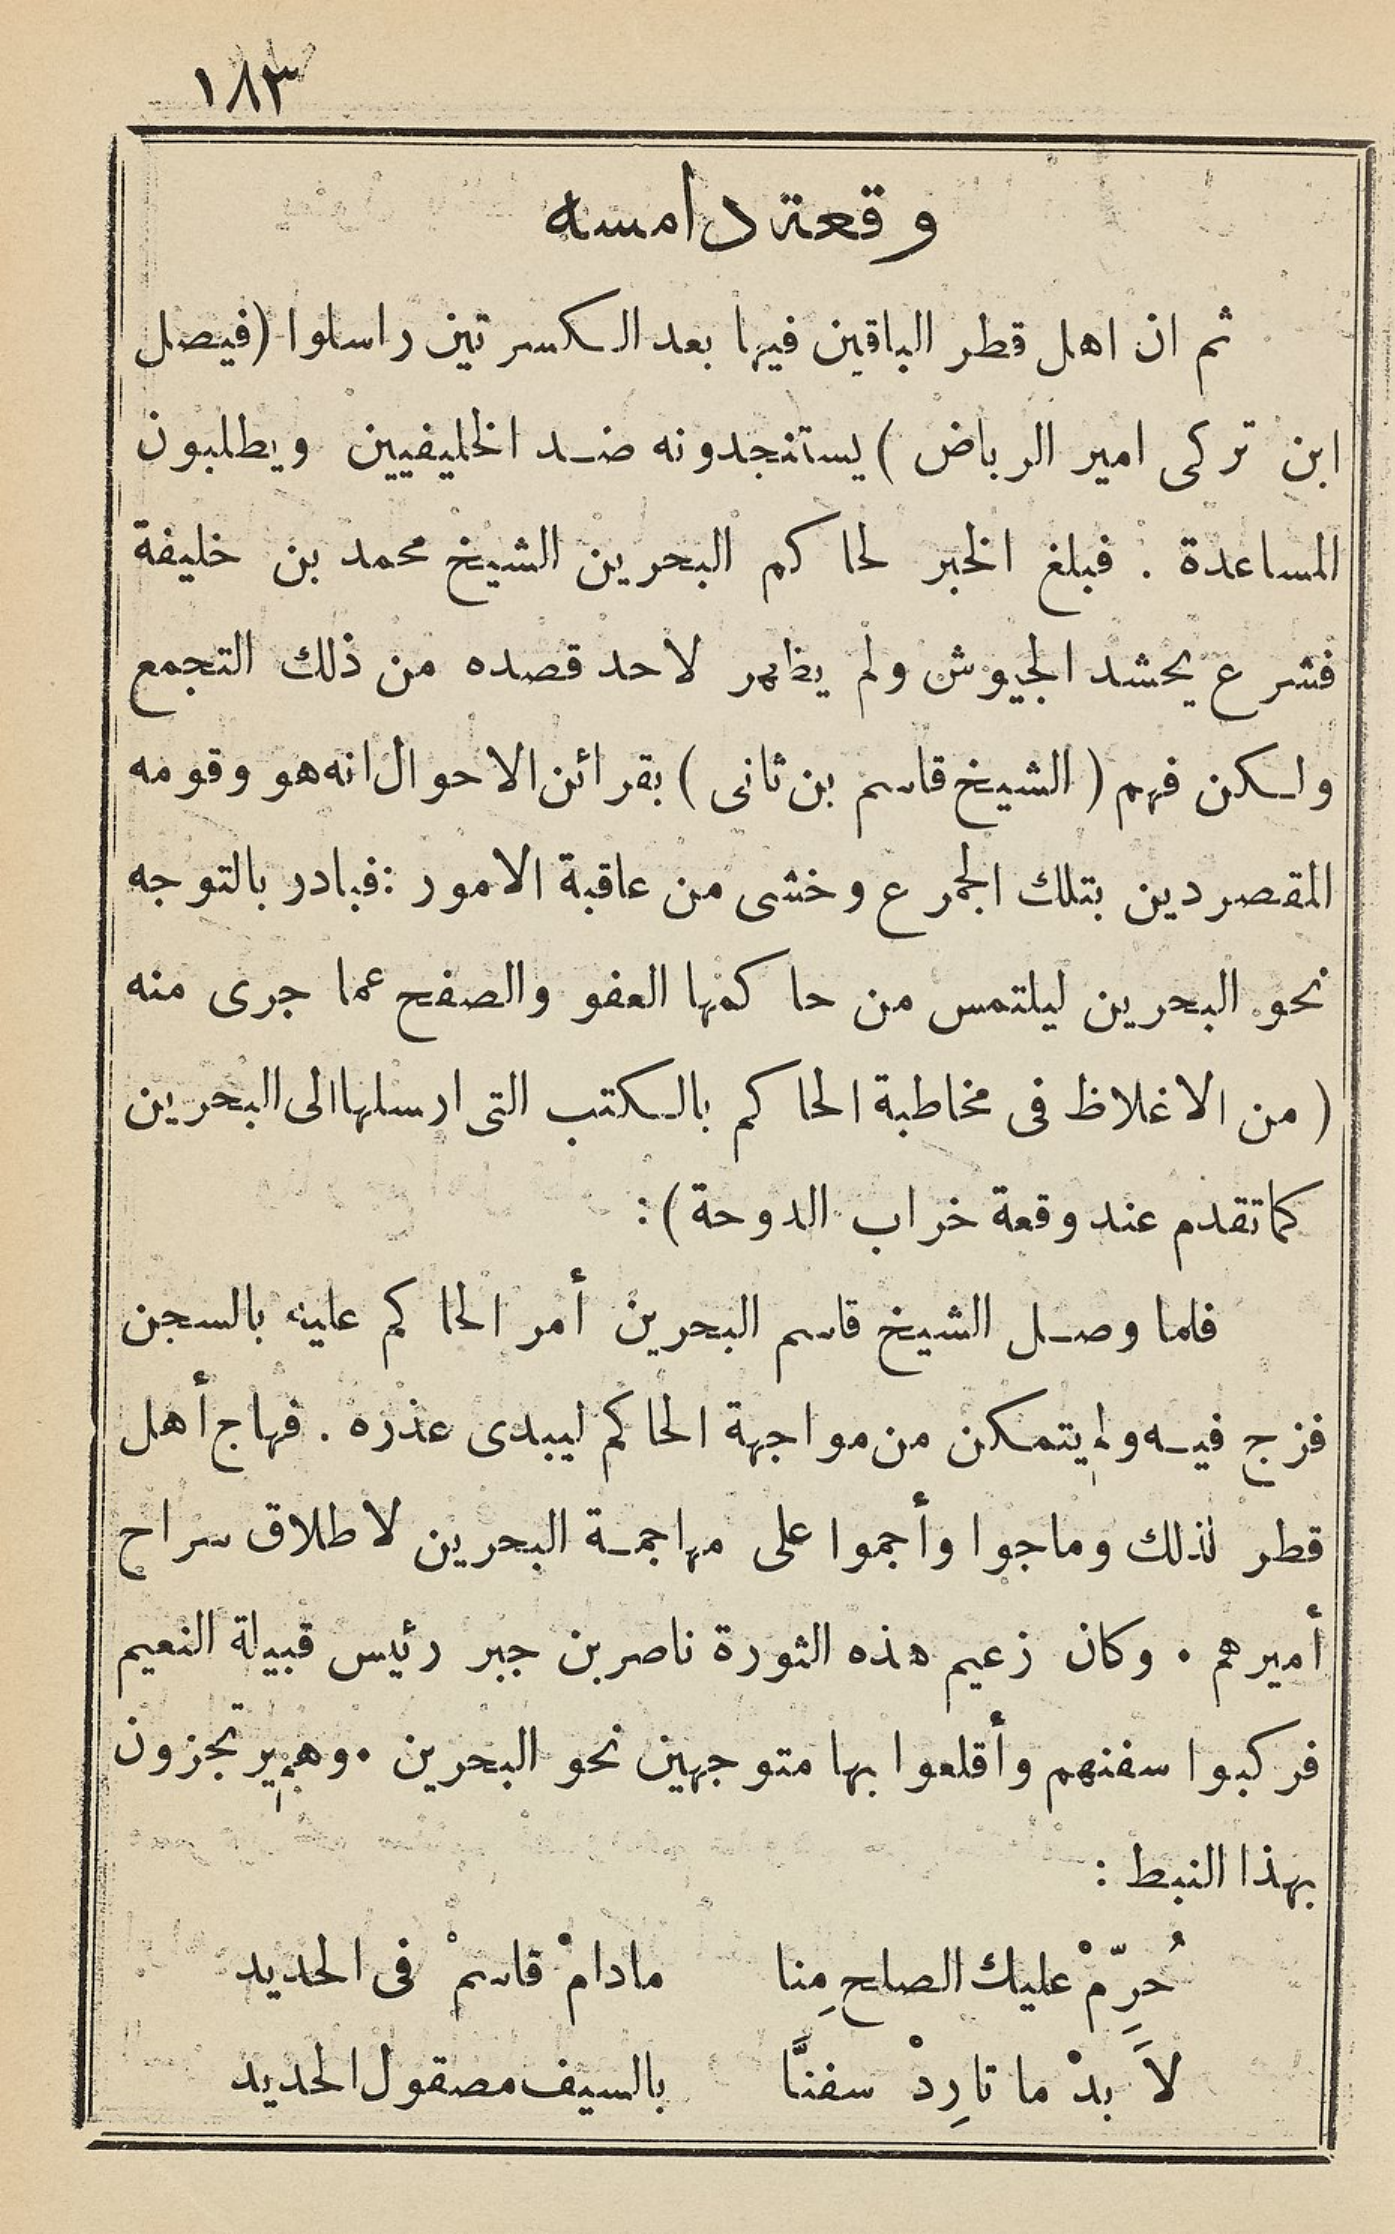 ١٨٣
وقعة دامسه
ثم ان اهل قطر الباقين فيها بعد الكسرتين راسلوا (فيصل
ابن تركى امير الرياض) يستنجدونه ضد الخليفيين ويطلبون
المساعدة . فبلغ الخبر لحاكم البحرين الشيخ محمد بن خليفة
فشرع يحشد الجيوش ولم يظهر لاحد قصده من ذلك التجمع
ولكن فهم (الشيخ قاسم بن ثانى) بقرائن الاحوال انه هو وقومه
المقصردين بتلك الجمرع وخشى من عاقبة الامور : فبادر بالتوجه
نحو البحرين ليلتمس من حاكمها العفو والصفح عما جرى منه
( من الاغلاظ فى مخاطبة الحاكم بالكتب التى ارسلها الى البحرين
كما تقدم عند وقعة خراب الدوحة) :
فلما وصل الشيخ قاسم البحرين أمر الحاكم عليه بالسجن
فزج فيه ولم يتمكن من مواجهة الحاكم ليبدى عذره . فهاج أهل
قطر لذلك وماجوا وأجموا على مهاجمة البحرين لاطلاق سراح
أميرهم . وكان زعيم هذه الثورة ناصر بن جبر رئيس قبيلة النعيم
فركبوا سفنهم وأقلعوا بها متوجهين نحو البحرين . وهم يرتجزون
بهذا النبط :
حُرِّمْ عليك الصلح مِنا مادامْ قاسمْ فى الحديد
لاَ بدْ ما تارِدْ سفنَّا بالسيف مصقول الحديد